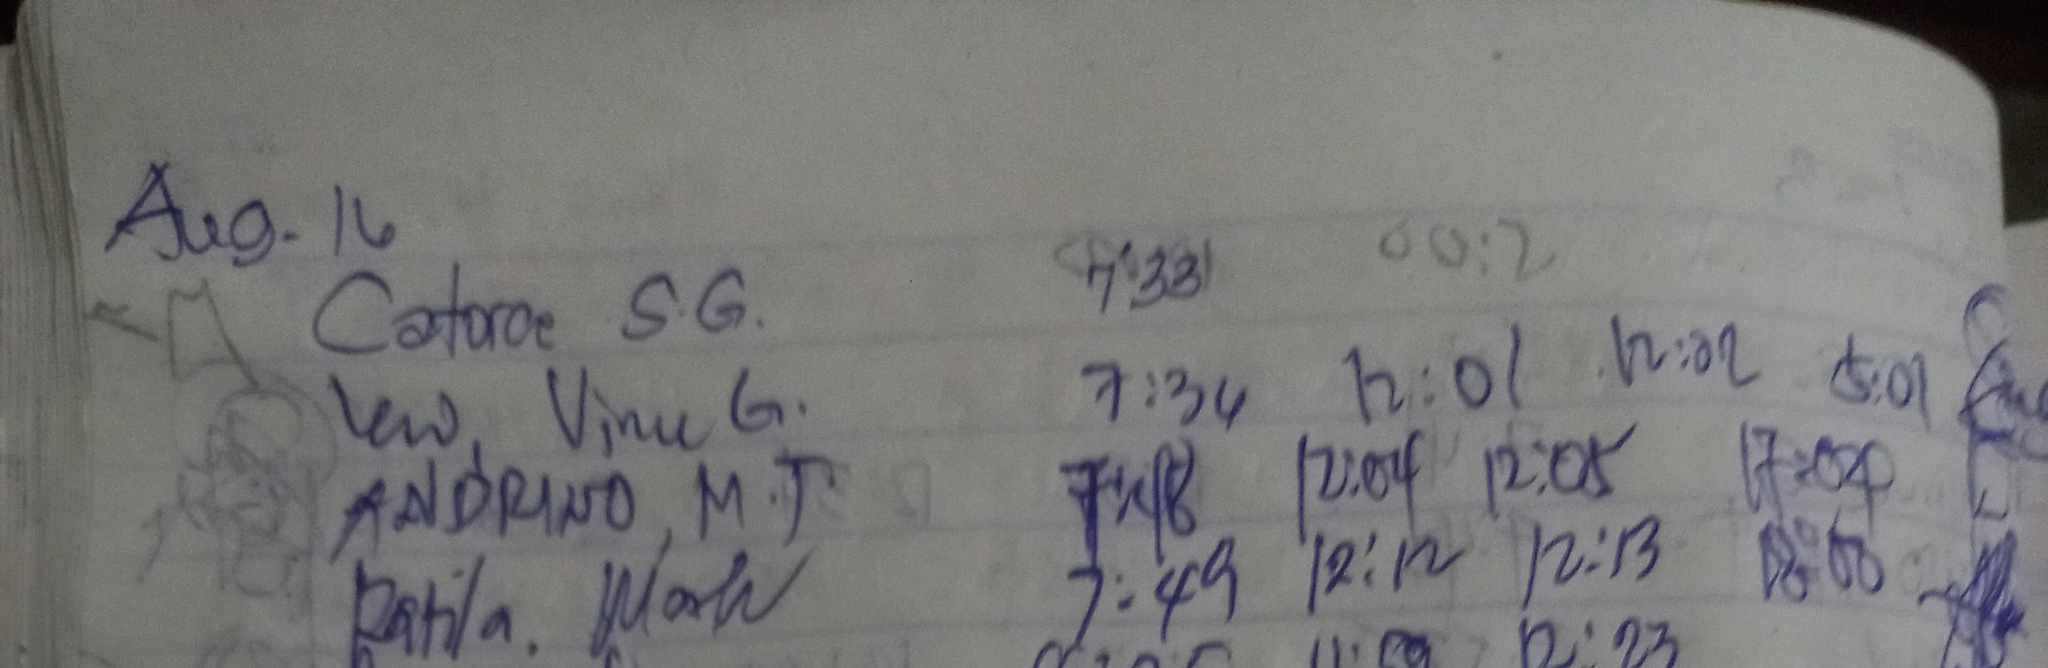 Aug. 16
Catorce S.G. 7:33
Vinu G. 7:34 12:01 12:02 5:01
ANDRINO, M.J 7:48 12:04 12:05 17:04
Patila, Mark 7:49 12:12 12:13
12:23